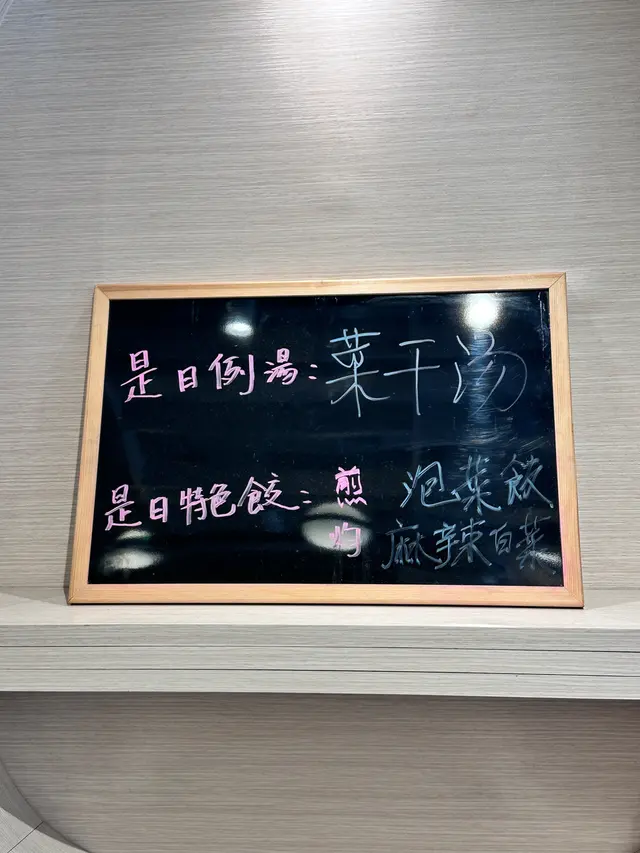 是日例湯：菜干汤
是日特色餃：煎 泡菜餃
灼 麻辣白菜